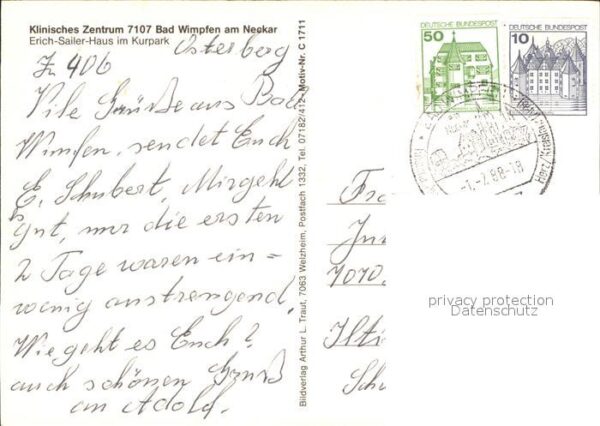 Klinisches Zentrum 7107 Bad Wimpfen am Neckar
Erich-Sailer-Haus im Kurpark
Osterberg
Zi 406
Vile Grüße aus Bad
Wimfen, sendet Euch
E. Schubert, Mir geht
gut, nur die ersten
2 Tage waren ein=
wenig anstrengend,
Wie geht es Euch?
auch schönen Gruß
an Adolf.
Bildverlag Arthur L. Traut, 7063 Welzheim, Postfach 1332, Tel. 07182/412 · Motiv-Nr. C 1711
DEUTSCHE BUNDESPOST
50
DEUTSCHE BUNDESPOST
10
-1.-7.88-18
7070
privacy protection
Datenschutz